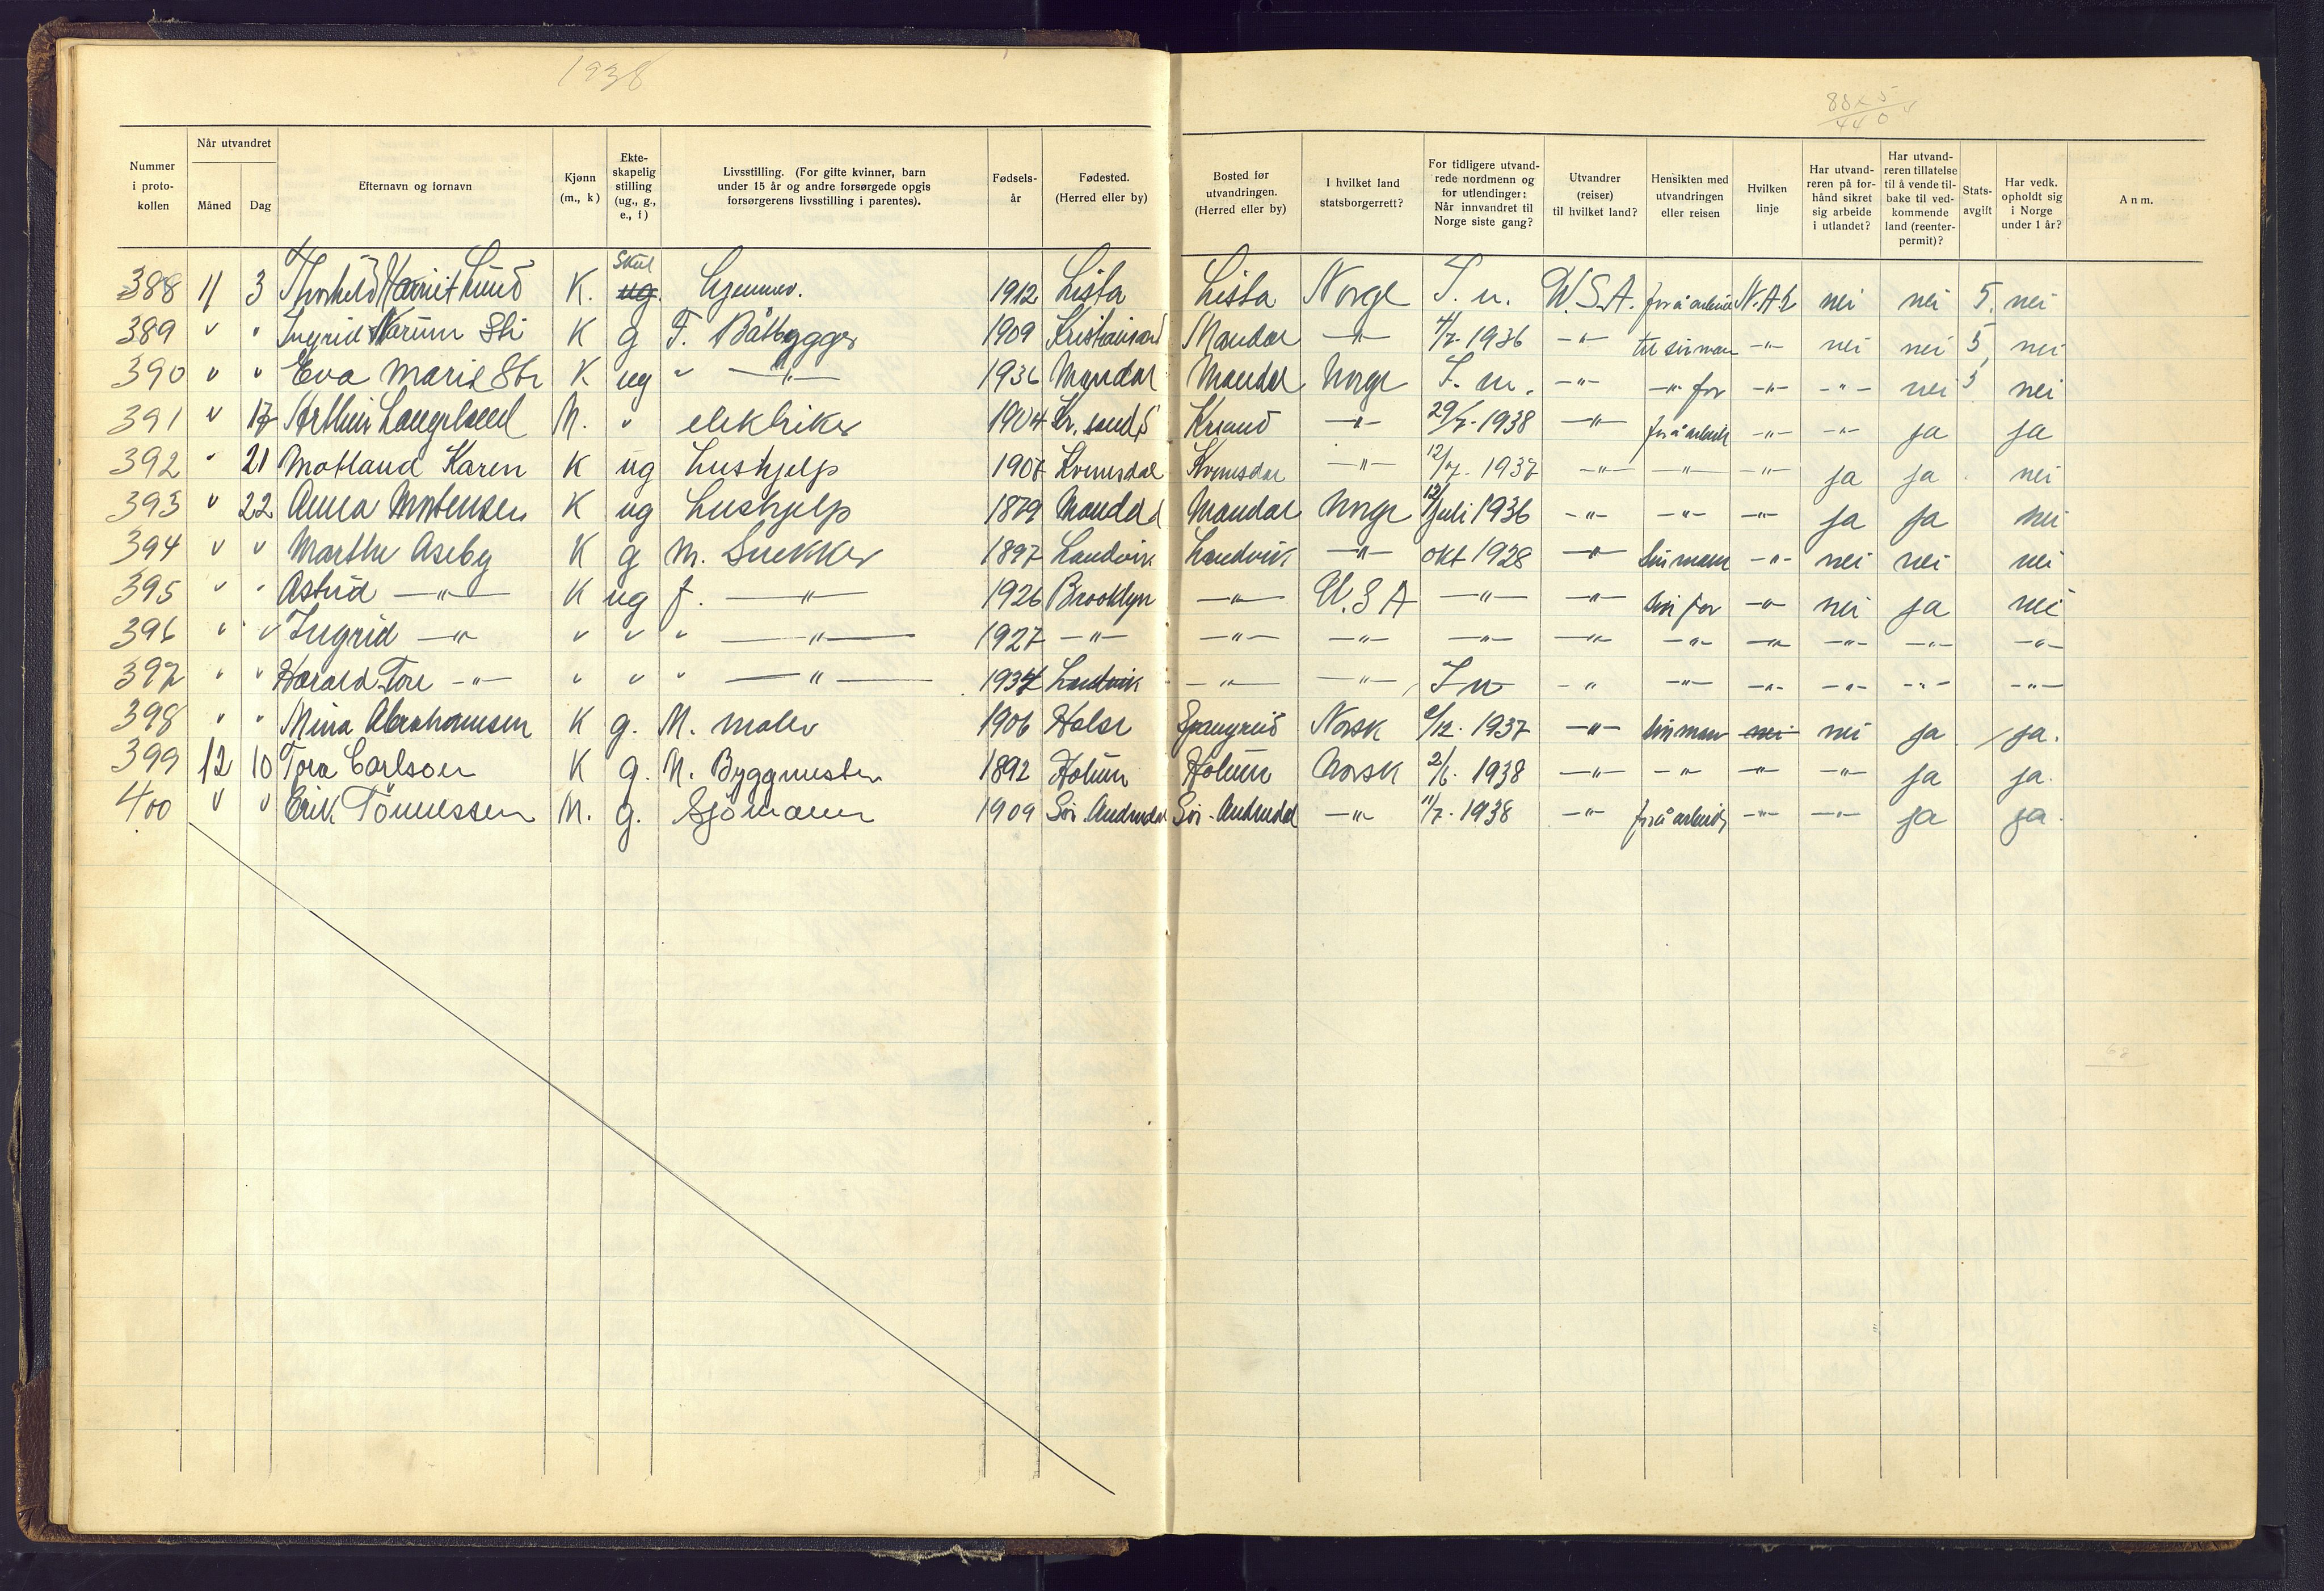 1938
88 x 5
440
Nummer i proto- kollen | Når utvandret Måned | Dag | Efternavn og fornavn | Kjønn (m., k) | Ekte- skapelig stilling (ug., g., e., f) | Livsstilling. (For gifte kvinner, barn under 15 år og andre forsørgede opgis forsørgerens livsstilling i parentes). | Fødsels- år | Fødested. (Herred eller by) | Bosted før utvandringen. (Herred eller by) | I hvilket land statsborgerrett? | For tidligere utvand- rede nordmenn og for utlendinger: Når innvandret til Norge siste gang? | Utvandrer (reiser) til hvilket land? | Hensikten med utvandringen eller reisen | Hvilken linje | Har utvand- reren på for- hånd sikret sig arbeide i utlandet? | Har utvand- reren tillatelse til å vende til- bake til ved- kommende land (reenter- permit)? | Stats- avgift | Har vedk. opholdt sig i Norge under 1 år? | Anm.
388 11 3 Thorhild Harriet Lund K. Skil ug. hjemmev. 1912 Lista Lista Norge I. u. U.S.A. for å arbeide N.A.L nei nei 5. nei
389 " " Ingrid Narum Sti K g F. Båtbygger 1909 Kristiansand Mandal -"- 4/7-1936 -"- til sin man -"- nei nei 5 nei
390 " " Eva Marie Sti K ug " -"- 1936 Mandal Mandal Norge I. u. -"- -"- far -"- -"- nei 5 nei
391 " 17 Arthur Langeland M. " elektriker 1904 Kr.sand S Krsand -"- 29/7-1938 -"- for å arbeide -"- -"- ja ja
392 " 21 Motland Karen K ug hushjelp 1907 Kvinesdal Kvinesdal -"- 12/7-1937 -"- -"- -"- ja ja nei
393 " 22 Anna Mortensen K ug hushjelp 1879 Mandal Mandal Norge 12/juli 1936 -"- -"- -"- ja ja nei
394 " " Marthe Aseby K g M. Snekker 1897 Landvik Landvik -"- okt 1928 -"- sin mann -"- nei nei nei
395 " " Astrid -"- K ug f. -"- 1926 Brooklyn -"- U.S A -"- -"- sin far -"- nei ja nei
396 " " Ingrid -"- " " " -"- 1927 -"- -"- -"- -"- -"- -"- -"- -"- -"- -"-
397 " " Harald Tore -"- " " " -"- 1934 Landvik -"- -"- I u -"- -"- -"- -"- -"- -"-
398 " " Mina Abrahamsen K g. M. maler 1906 Halse Spangreid Norsk /12. 1937 -"- sin man nei nei ja ja.
399 12 10 Tora Carlson K g. M. Byggmester 1892 Holum Holum Norsk 2/6. 1938 -"- -"- -"- -"- ja ja.
400 " " Erik Tönnessen M. g. Sjömann 1909 Sör. Audnedal Sör-Audnedal -"- 11/7-1938 -"- for å arbeide -"- -"- ja ja.